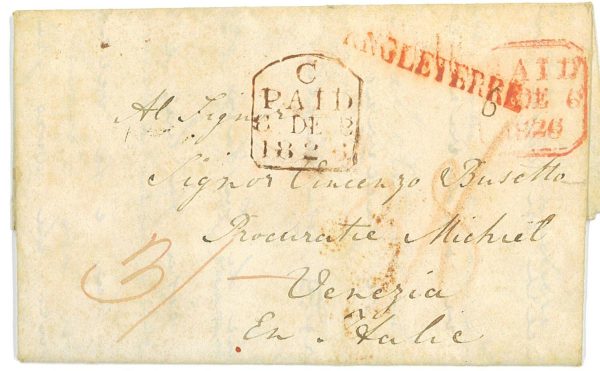 ANGLETERRE
PAID
DE 6
1826
C
PAID
6 DE 6
1826
6
Al Signor
Signor Vincenzo Busetto
Procuratie Michiel
Venezia
En Italie
3/-